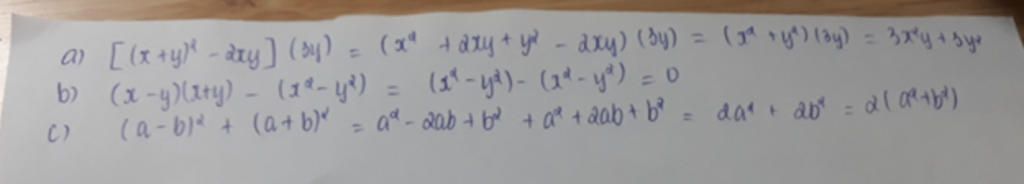 a) [(x+y)² - 2xy] (3y) = (x² + 2xy + y² - 2xy) (3y) = (x² + y²) (3y) = 3x²y + 3y²
b) (x-y)(x+y) - (x²-y²) = (x²-y²) - (x²-y²) = 0
c) (a-b)² + (a+b)² = a² - 2ab + b² + a² + 2ab + b² = 2a² + 2b² = 2(a²+b²)